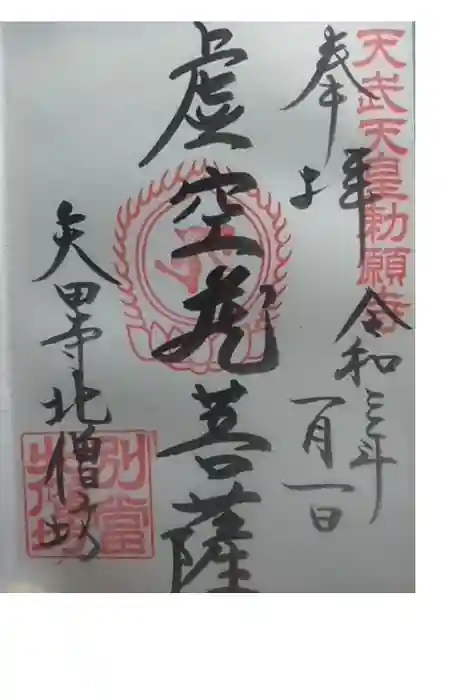 天武天皇勅願寺
奉拝
令和三年
一月一日
虚空蔵菩薩
矢田寺北僧坊